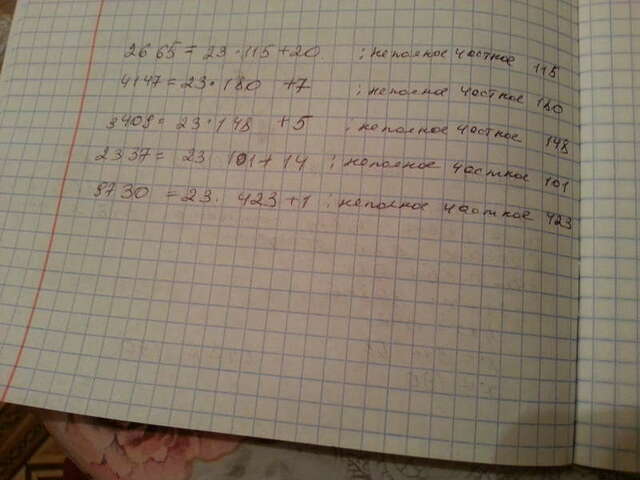 2665 = 23 · 115 + 20 ; неполное частное 115
4147 = 23 · 180 + 7 ; неполное частное 180
3409 = 23 · 148 + 5 ; неполное частное 148
2337 = 23 101 + 14 ; неполное частное 101
9730 = 23 · 423 + 1 ; неполное частное 423